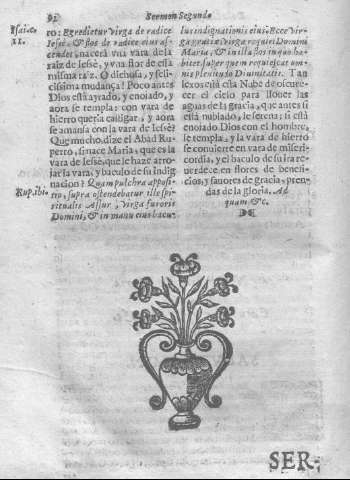 92 Sermon Segundo
Isai. c.
11.
ro: Egredietur virga de radice
Iesse, & flos de radice eius as-
cendet; nacerá vna vara de la
raiz de Iesse, y vna flor de esta
misma raiz. O dichosa, y feli-
cissima mudança! Poco antes
Dios està ayrado, y enojado, y
aora se templa: con vara de
hierro queria castigar, y aora
se amansa con la vara de Iesse?
Que mucho, dize el Abad Ru-
perto, si nace Maria, que es la
vara de Iesse, que le haze arro-
jar la vara, y baculo de su indig
nacion? Quam pulchra apposi-
Rup. ibi.
tio, supra ostendebatur ille spi-
ritualis Assur, virga furoris
Domini, & in manu eius bacu-
lus indignationis eius. Ecce vir-
ga gratiæ virga requiei Domini
Maria, & in illa flos in quo ha-
bitet, super quem requiescat om-
nis plenitudo Diuinitatis. Tan
lexos està esta Nube de oscure-
cer el cielo para llouer las
aguas de la gracia, que antes si
està nublado, le serena; si està
enojado Dios con el hombre,
le templa, y la vara de hierro
se conuierte en vara de miseri-
cordia, y el baculo de su ira re-
uerdece en flores de benefi-
cios, y fauores de gracia, pren-
das de la gloria. Ad
quam &c.
SER-